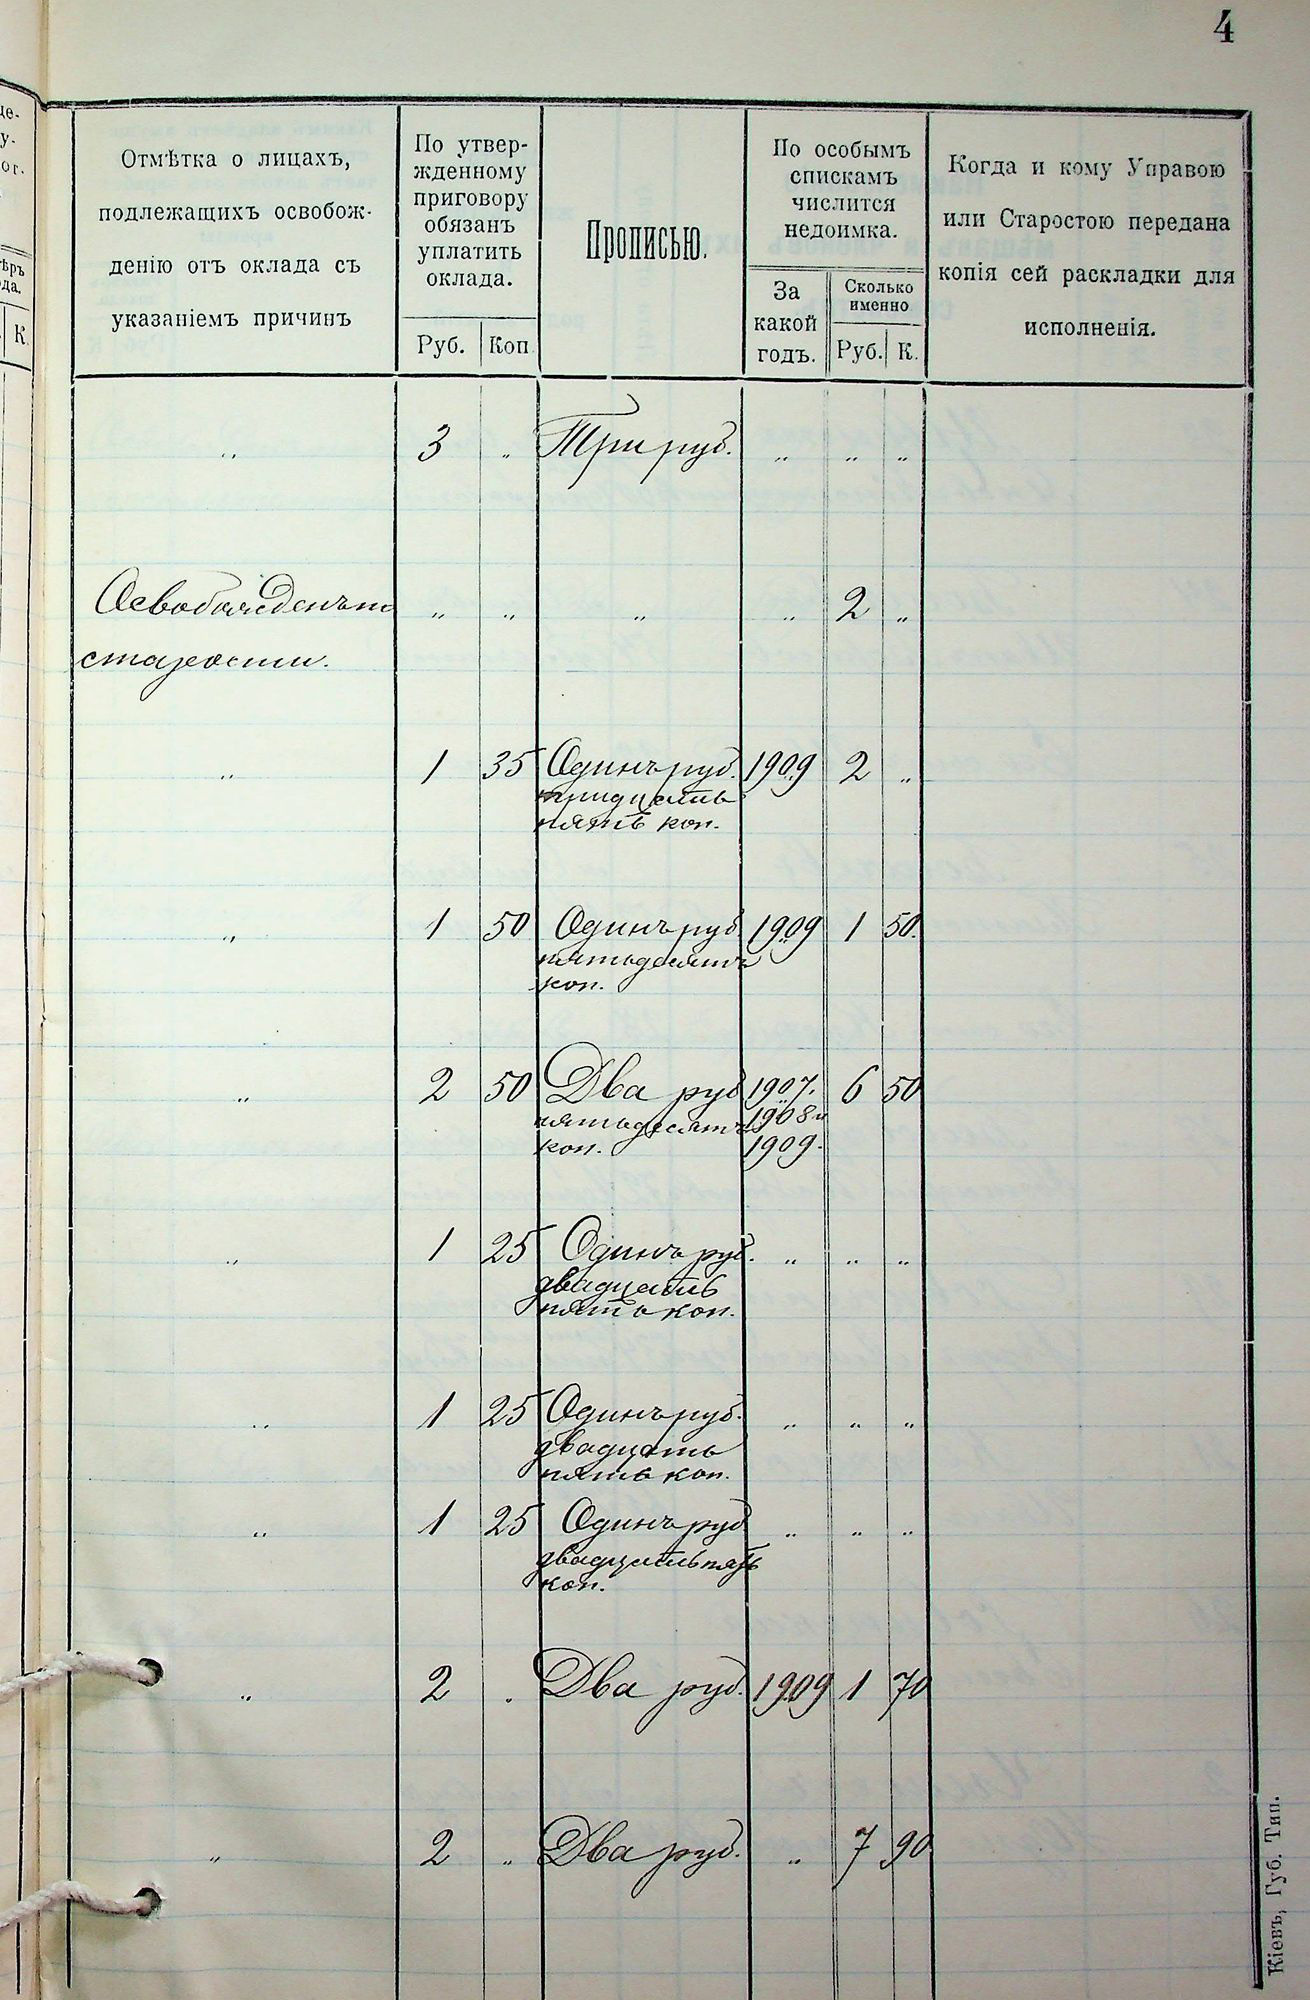 4
Отмѣтка о лицахъ,
подлежащихъ освобож-
денію отъ оклада съ
указаніемъ причинъ
По утвер-
жденному
приговору
обязанъ
уплатить
оклада.
Руб. Коп.
Прописью.
По особымъ
спискамъ
числится
недоимка.
За
какой
годъ.
Сколько
именно
Руб. К.
Когда и кому Управою
или Старостою передана
копія сей раскладки для
исполненія.
К.
„ 3 „ Три руб. „ „ „
Освобожденъ по „ „ „ „ 2 „
старости.
„ 1 35 Одинъ руб. 1909 2 „
тридцать
пять коп.
„ 1 50 Одинъ руб. 1909 1 50.
пятьдесятъ
коп.
„ 2 50 Два руб 1907. 6 50
пятьдесятъ 1908 и
коп. 1909.
„ 1 25 Одинъ руб. „ „ „
двадцать
пять коп.
„ 1 25 Одинъ руб. „ „ „
двадцать
пять коп.
„ 1 25 Одинъ руб „ „ „
двадцать пять
коп.
„ 2 „ Два руб. 1909 1 70
„ 2 „ Два руб. „ 7 90
Кіевъ, Губ. Тип.